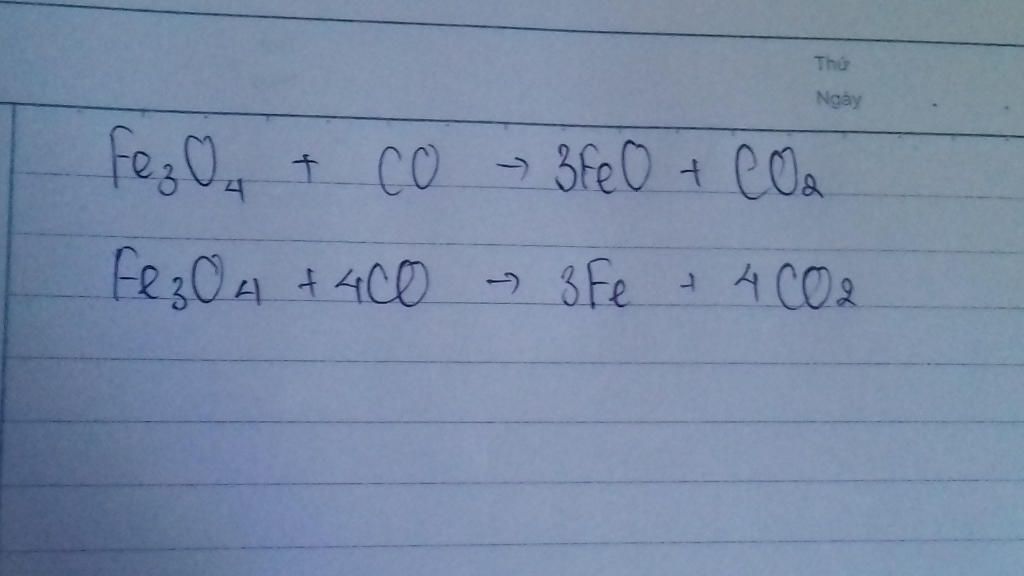 Thứ
Ngày
Fe₃O₄ + CO → 3FeO + CO₂
Fe₃O₄ + 4CO → 3Fe + 4CO₂